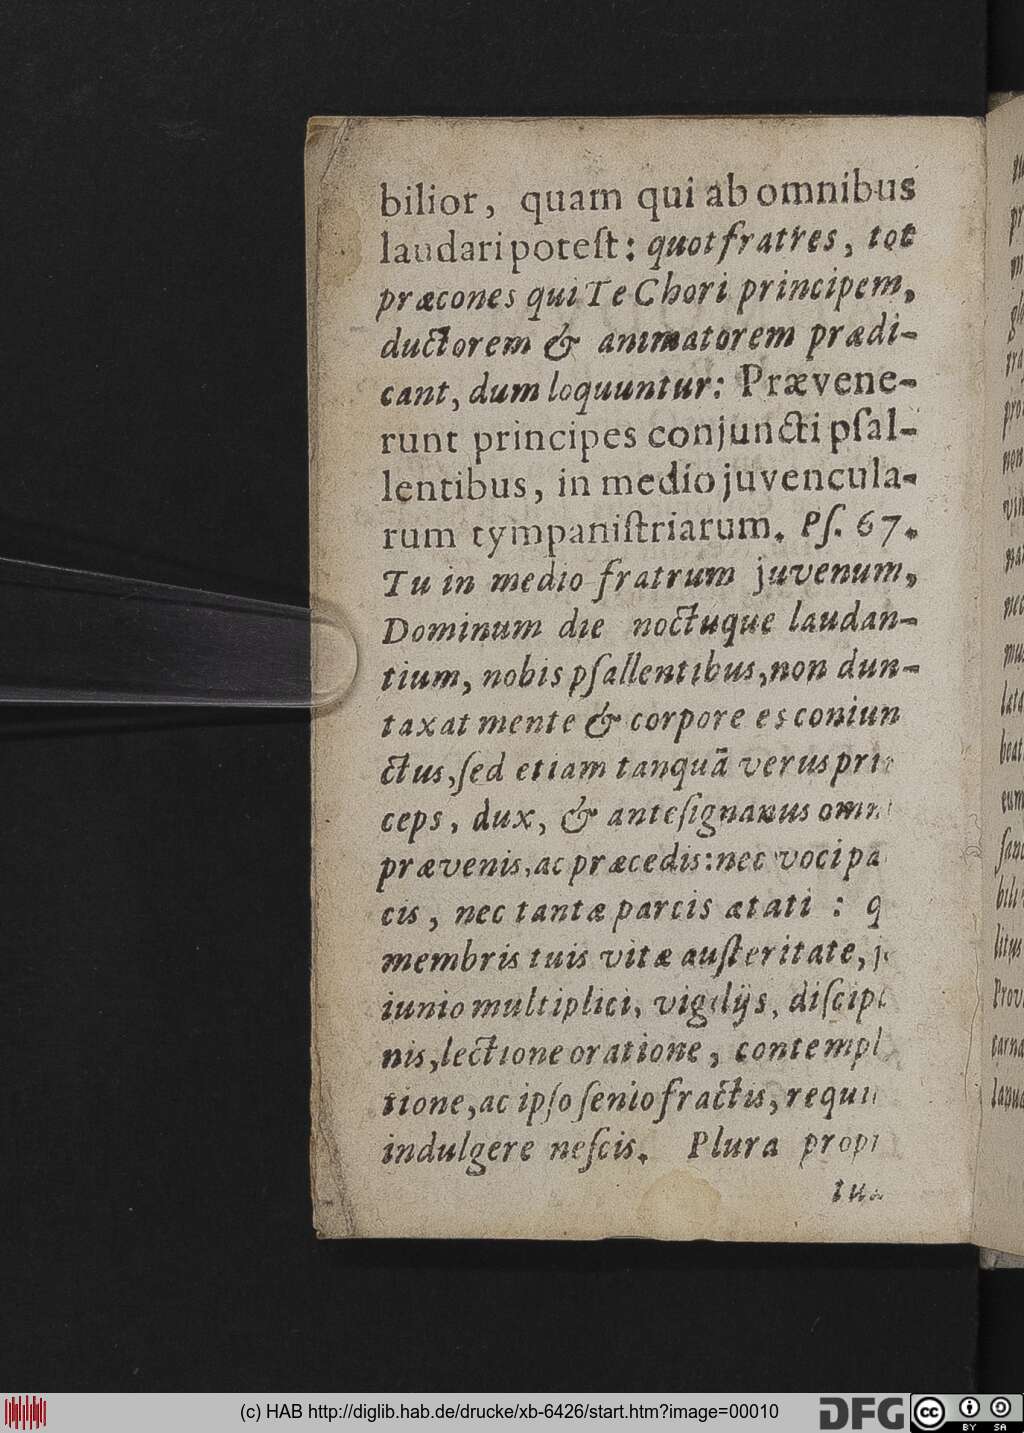 bilior, quam qui ab omnibus
laudari poteſt: quot fratres, tot
præcones qui Te Chori principem,
ductorem & animatorem prædi-
cant, dum loquuntur: Prævene-
runt principes conjuncti pſal-
lentibus, in medio juvencula-
rum tympaniſtriarum. Pſ. 67.
Tu in medio fratrum juvenum,
Dominum die noctuque laudan-
tium, nobis pſallentibus, non dun-
taxat mente & corpore es coniun
ctus, ſed etiam tanquā verus
ceps, dux, & anteſignanus
prævenis, ac præcedis: nec voci
cis, nec tantæ parcis ætati:
membris tuis vitæ auſteritate,
iunio multiplici, vigilijs,
nis, lectione oratione,
tione, ac ipſo ſenio fractis,
indulgere neſcis. Plura
(c) HAB http://diglib.hab.de/drucke/xb-6426/start.htm?image=00010
DFG
cc BY SA